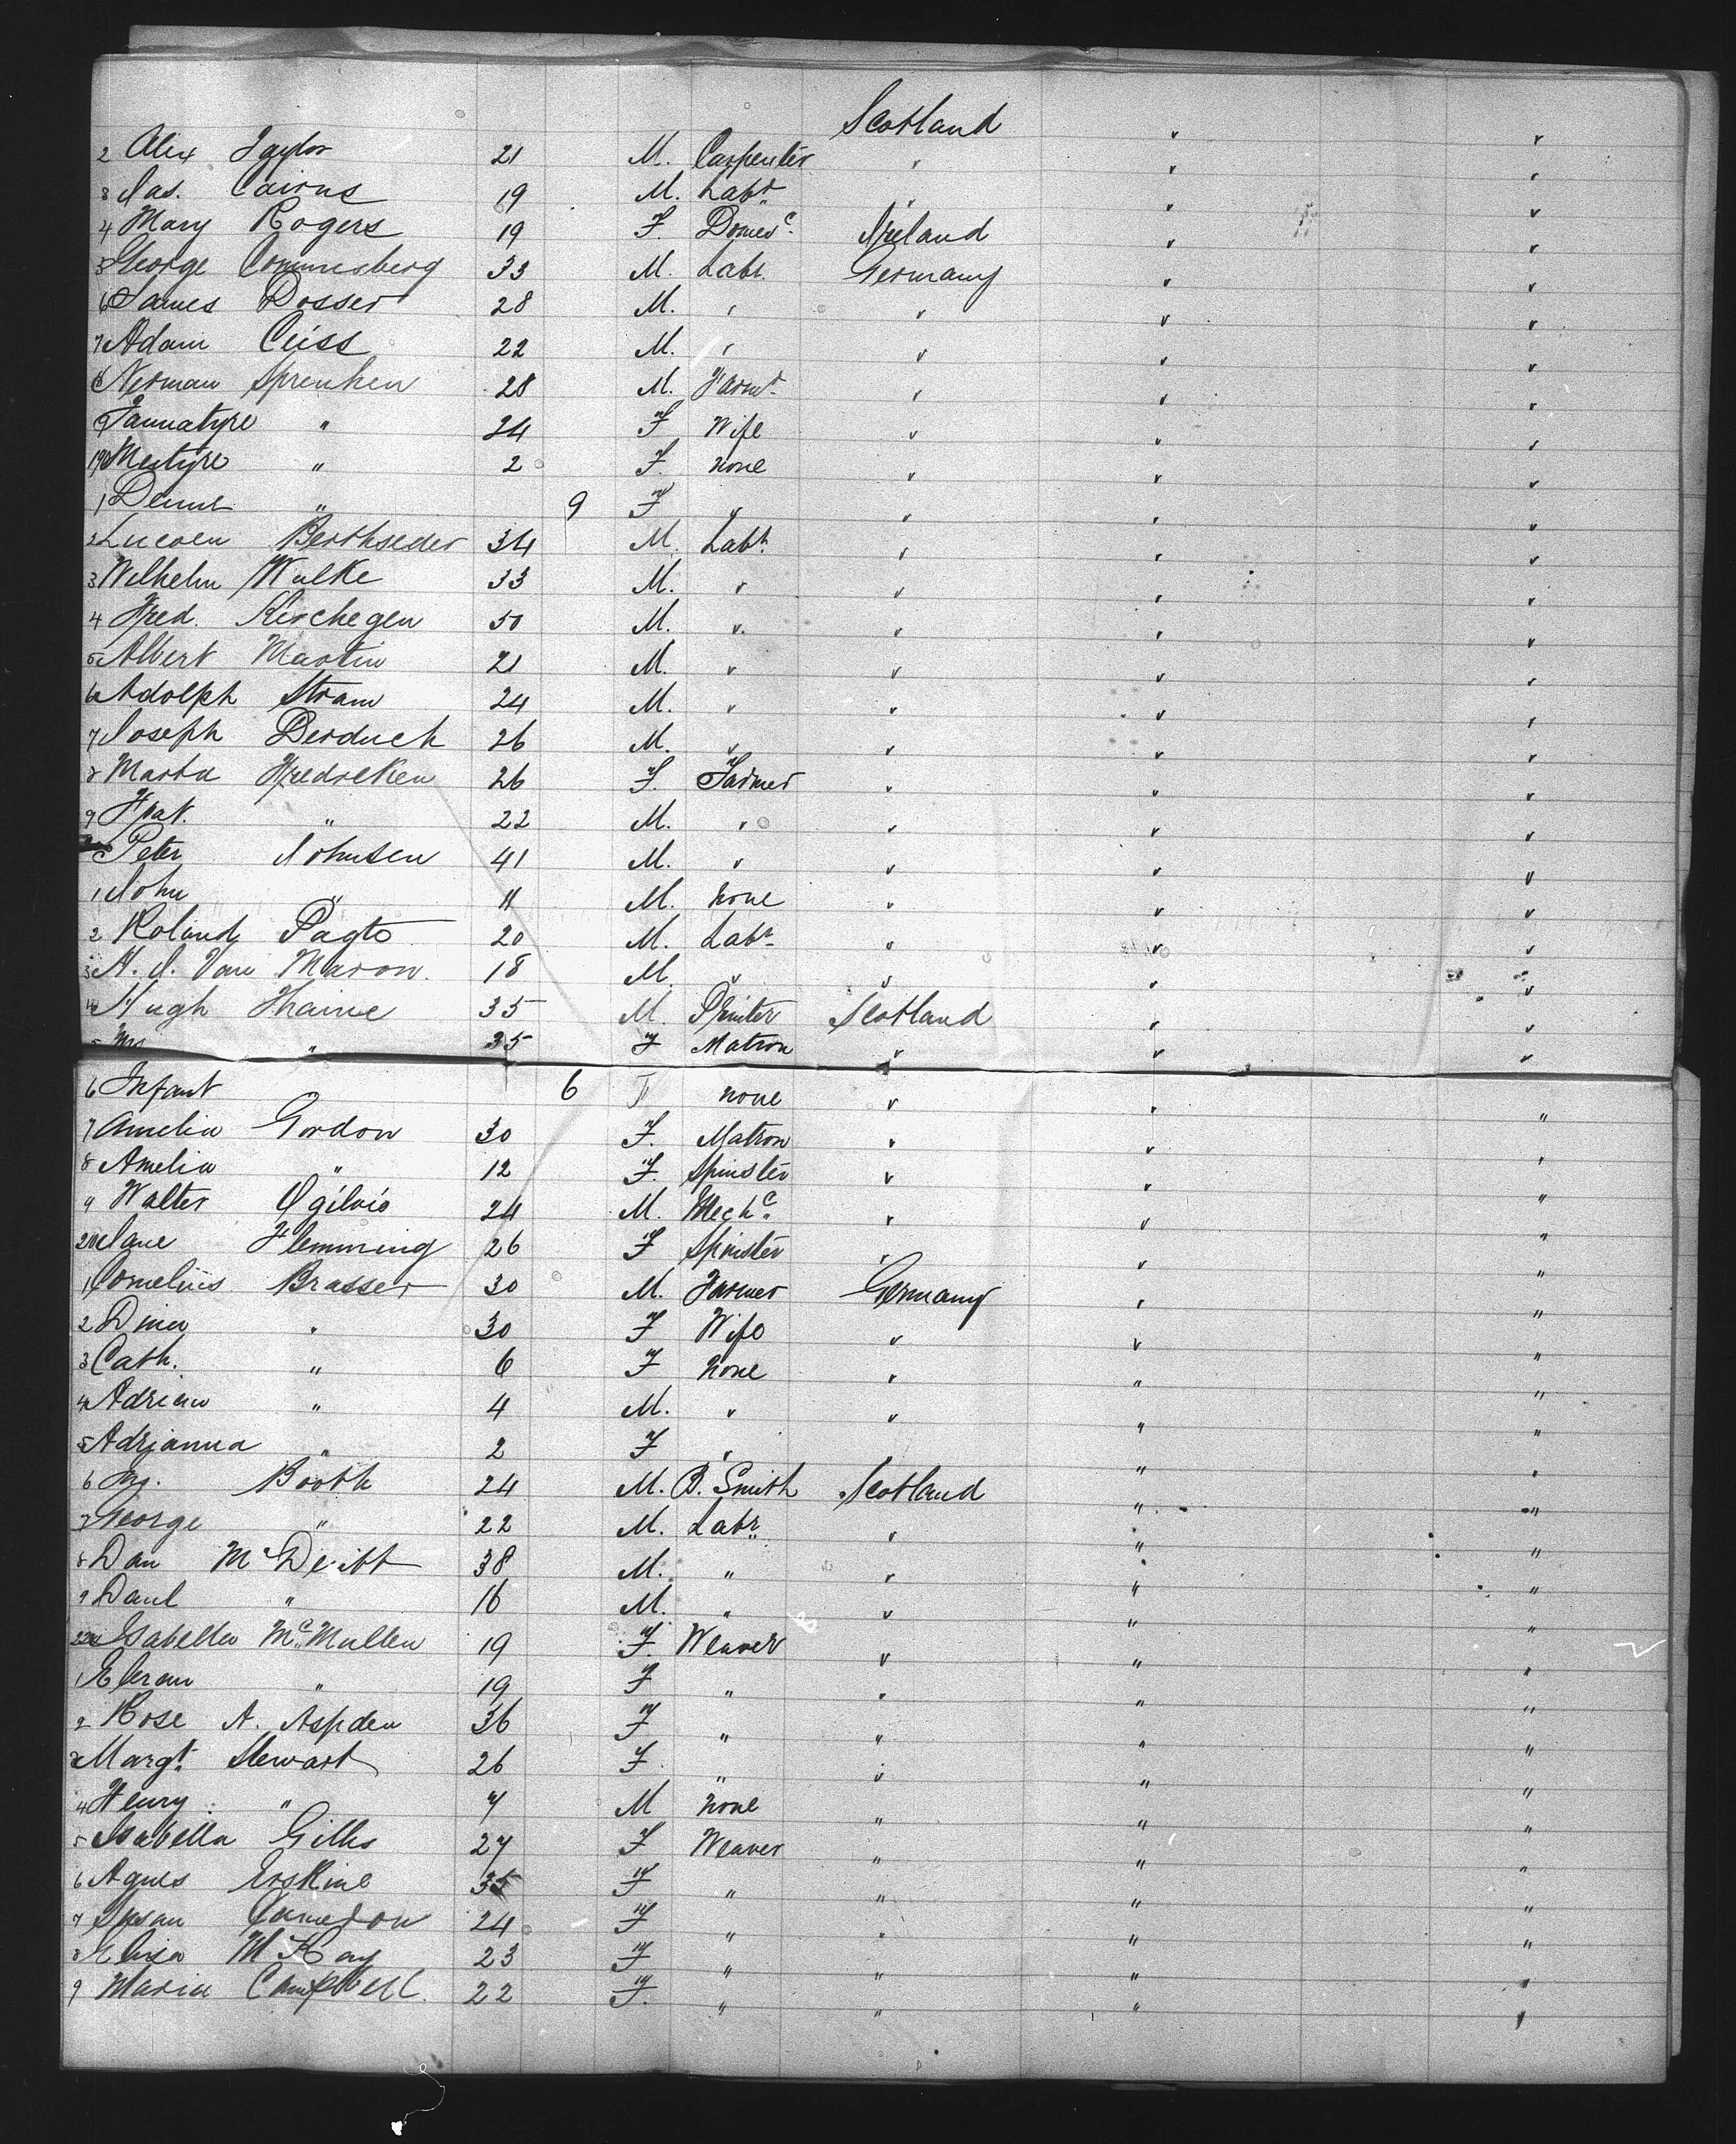 Scotland
2 Alex Taylor 21 M. Carpenter "
3 Jas. Cairns 19 M. Labr "
4 Mary Rogers 19 F. Domesc. Ireland "
5 George Commesberg 33 M. Labr. Germany "
6 James Dosser 28 M. " " "
7 Adam Ceiss 22 M. " " "
8 Herman Sprenken 28 M. Farmr " "
9 Jannatyre " 24 F Wife " "
190 Mestyre " 2 F. none " "
1 " 9 F " " "
2 Berthseder 34 M. Labr. " "
3 Wilhelm Walke 33 M. " " "
4 Fred. Kirchegen 50 M. " " "
5 Albert Martin 21 M. " " "
6 Adolph Stram 24 M. " " "
7 Joseph Derduck 26 M. " " "
8 Marta Fredreken 26 F. Farmer " "
9 " 22 M. " " "
Peter Johnsen 41 M. " " "
1 John " 11 M. none " "
2 Roland Pagto 20 M. Labr " "
3 H. J. Van Maron. 18 M. " " "
4 Hugh Thaine 35 M. Printer Scotland "
5 Mrs " 35 F Matron " "
6 Infant 6 none " "
7 Amelia Gordon 30 F. Matron " "
8 Amelia " 12 F. Spinster " "
9 Walter Ogilvie 24 M. Mechc. " "
Jane Flemming 26 F Spinster " "
1 Cornelius Brasser 30 M. Farmer Germany "
2 Dina " 30 F Wife " "
3 Cath. " 6 F None " "
4 Adrian " 4 M. " " "
5 Adrjanna " 2 F " " "
6 Booth 24 M. B. Smith Scotland "
7 George " 22 M. Labr. " "
8 Dan McDevitt 38 M. " " "
9 Danl " 16 M. " " "
Isabella Mc.Mullen 19 F. Weaver " "
1 " 19 F " " "
2 Rose A. Aspden 36 F " " "
3 Margt. Stewart 26 F. " " "
4 Henry " 7 M none " "
5 Isabella Gilles 27 F Weaver " "
6 Agnes Erskine 35 F " " "
7 Susan Cameron 24 F " " "
8 Eliza McKay 23 F " " "
9 Maria Campbell. 22 F. " " "